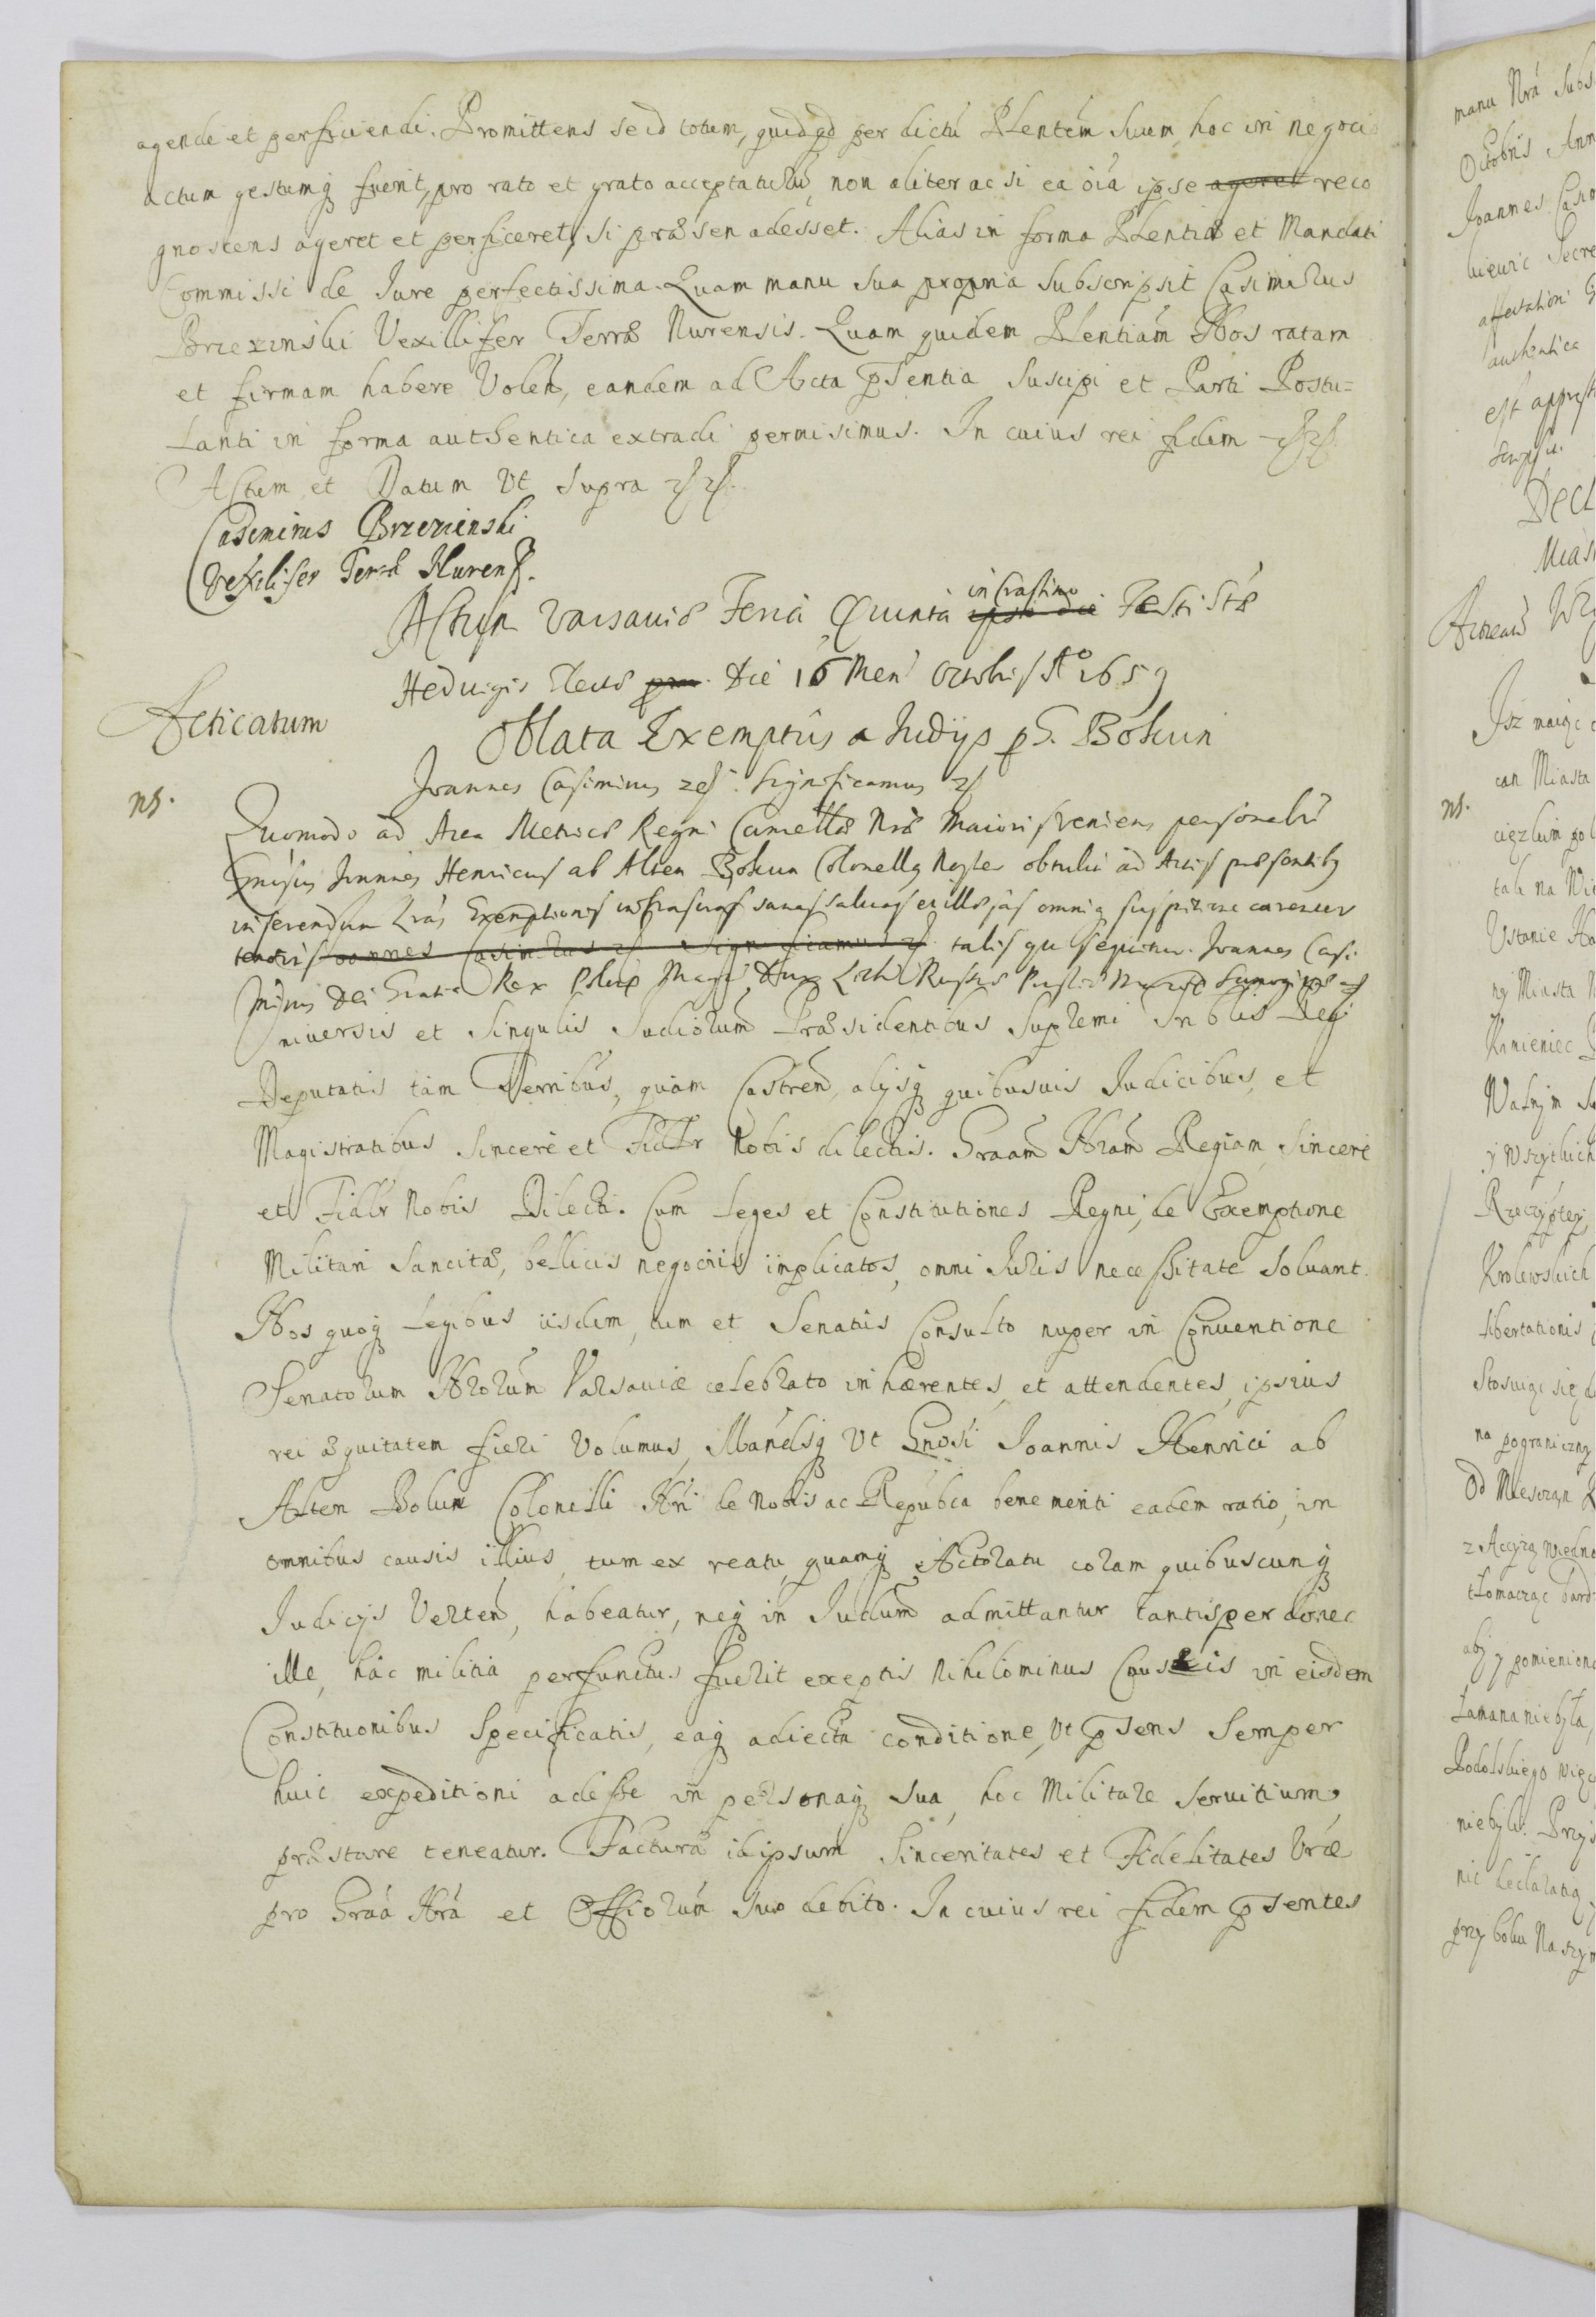 agende et perficiendi. Promittens se id totum, quidqd per dictũ Plentem suum, hoc in negocio
actum gestumq fuerit, pro rato et grato acceptaturũ, non aliter ac si ea oĩa ipse ageret reco
gnoscens ageret et perficeret, si præsen adesset. Alias in forma Plentiæ et Mandati
Commissi de Jure perfectissima. Quam manu sua propria subscripsit Casimirus
Brzezinski Vexillifer Terræ Nurensis. Quam quidem Plentiam Nos ratam
et firmam habere Volen, eandem ad Acta psentia suscipi et Parti Postu=
lanti in forma authentica extradi permisimus. In cuius rei fidem
Actum et Datum Ut supra
Casimirus Brzezinski
Vexilifer Terræ Nurens.
in Crastino
Actum Varsaviæ Feria Quinta ipsa die Festi Stæ
Hedvigis Die 16 Men Octobris Ao 1659
Acticatum
Oblata Exemptũs a Judijs p G. Bokun
Joannes Casimirus significamus
NB.
Quomodo ad Acta Metrices Regni Cancellæ Nræ Maioris veniens personalr
Gnosus Joannes Henricus ab Alten Bokun Colonellq Noster obtulit ad Actis præsentibq
inserendum Lrás Exemptionis infrascras sanas salvas et illæsas omniq suspitione carentes
tenoris Joannes Casimirus significamus talis qui sequitur. Joannes Casi
mirus Dei Gratia Rex Poloniæ Magn Dux Lith Russiæ Prussiæ Samogitiæ
niversis et singulis Judiciorum Præsidentibus Supremi Triblis Regi
Deputatis tam Terribus, quam Castren, alijsq quibusvis Judicibus, et
Magistratibus sincere et Fidlr Nobis dilectis. Graam Nram Regiam, sincere
et Fidlr Nobis Dilecti. Cum Leges et Constitutiones Regni, de Exemptione
Militari sancitæ, bellicis negociis implicatos, omni Juris necessitate solvant.
Nos quoq Legibus iisdem, tum et Senatûs Consulto nuper in Conventione
Senatorum Nrorum Varsaviæ celebrato inhærentes, et attendentes, ipsius
rei æquitatem fieri Volumus, Mandsq Ut Gnosi Joannis Henrici ab
Alten Bokun Colonelli Nri de Nobis ac Republca bene meriti eadem ratio, in
omnibus causis illius, tum ex reatu, quamq Actoratu coram quibuscunq
Judicijs Verten, habeatur, neq in Judium admittantur tantisper donec
ille, hâc militia perfunctus fuerit exeptis nihilominus Cnusis in eisdem
Constituonibus specificatis, eaq adiecta conditione, Ut psens semper
huic expeditioni adesse in personaq sua, hoc Militare servitium
præstare teneatur. Facturæ id ipsum Sinceritates et Fidelitates Vræ
pro Graa Nra et Officiorum suo debito. In cuius rei fidem psentes
manu Nra Subs
Octobris Ann
Joannes Casim
authentica
est appress
Miasta
can Miasta
NB.
tak na
Ustanie
ny Miasta
Kamieniec
Walnym
y Wszytkich
Rzeczyptey
Krolewskich
libertationis
na pograniczny
Od Mieszczan
aby y pomieniona
Łamana niebyła
Podolskiego
przy boku Naszym